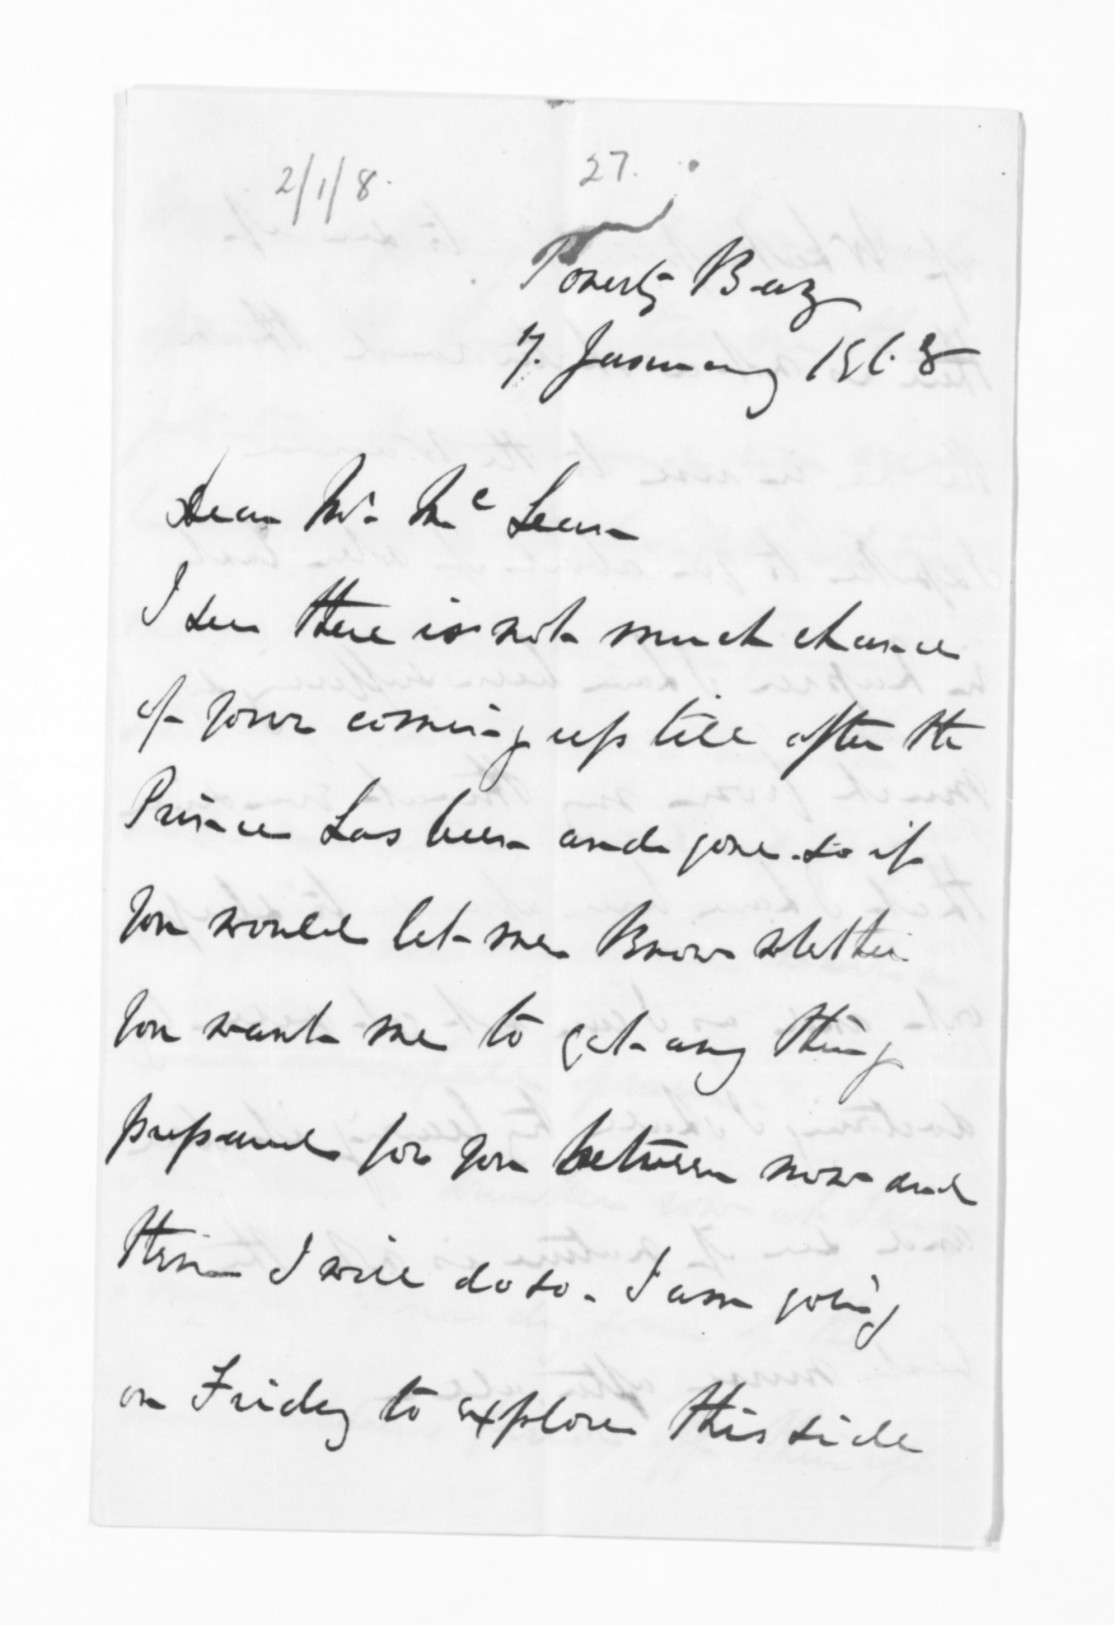 2/1/8.
27.
Poverty Bay
7. January 1868
Dear Mr. McLean
I see there is not much chance
of your coming up till after the
Prince has been and gone. so if
you would let me know whether
you want me to get any thing
prepared for you between now and
then I will do so. I am going
on Friday to explore this side